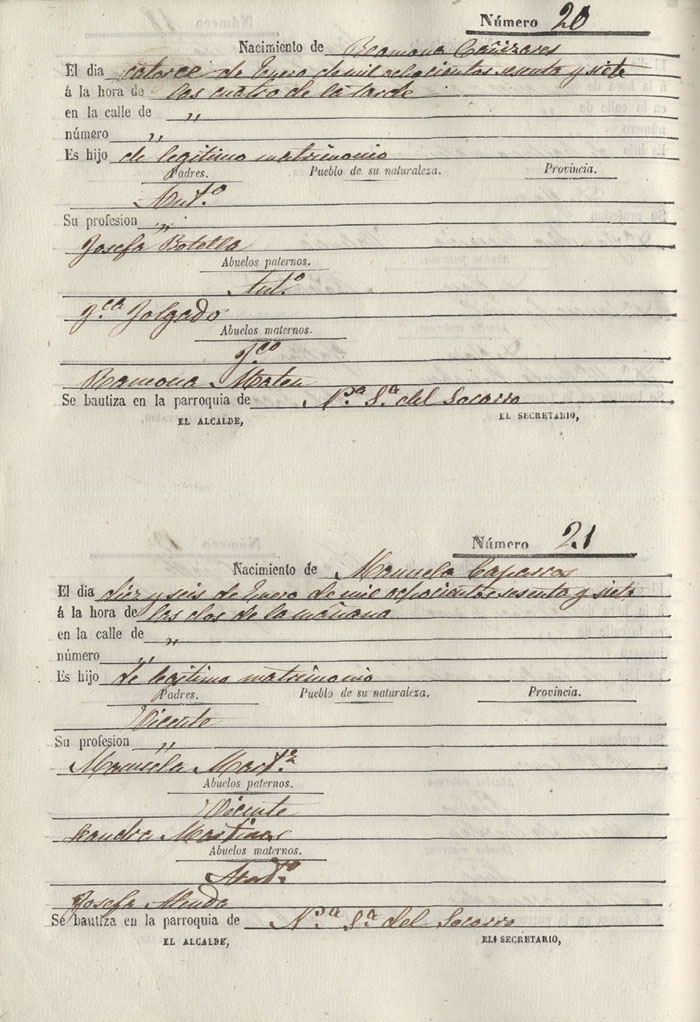 Número 20
Nacimiento de Ramona Cañizares
El dia catorce de Enero de mil ochocientos sesenta y siete
á la hora de las cuatro de la tarde
en la calle de „
número „
Es hijo de legitimo matrimonio
Padres. Pueblo de su naturaleza. Provincia.
Ant.º
Su profesion „
Josefa Botella
Abuelos paternos.
Ant.º
F.ca Folgado
Abuelos maternos.
F.co
Ramona Mateu
Se bautiza en la parroquia de N.ª S.ª del Socorro
EL ALCALDE, EL SECRETARIO,
Número 21
Nacimiento de Manuela
El dia diez y seis de Enero de mil ochocientos sesenta y siete
á la hora de las dos de la mañana
en la calle de „
número „
Es hijo de legitimo matrimonio
Padres. Pueblo de su naturaleza. Provincia.
Vicente
Su profesion „
Manuela Mart.z
Abuelos paternos.
Vicente
Leandra Martinez
Abuelos maternos.
Josefa
Se bautiza en la parroquia de N.ª S.ª del Socorro
EL ALCALDE, EL SECRETARIO,